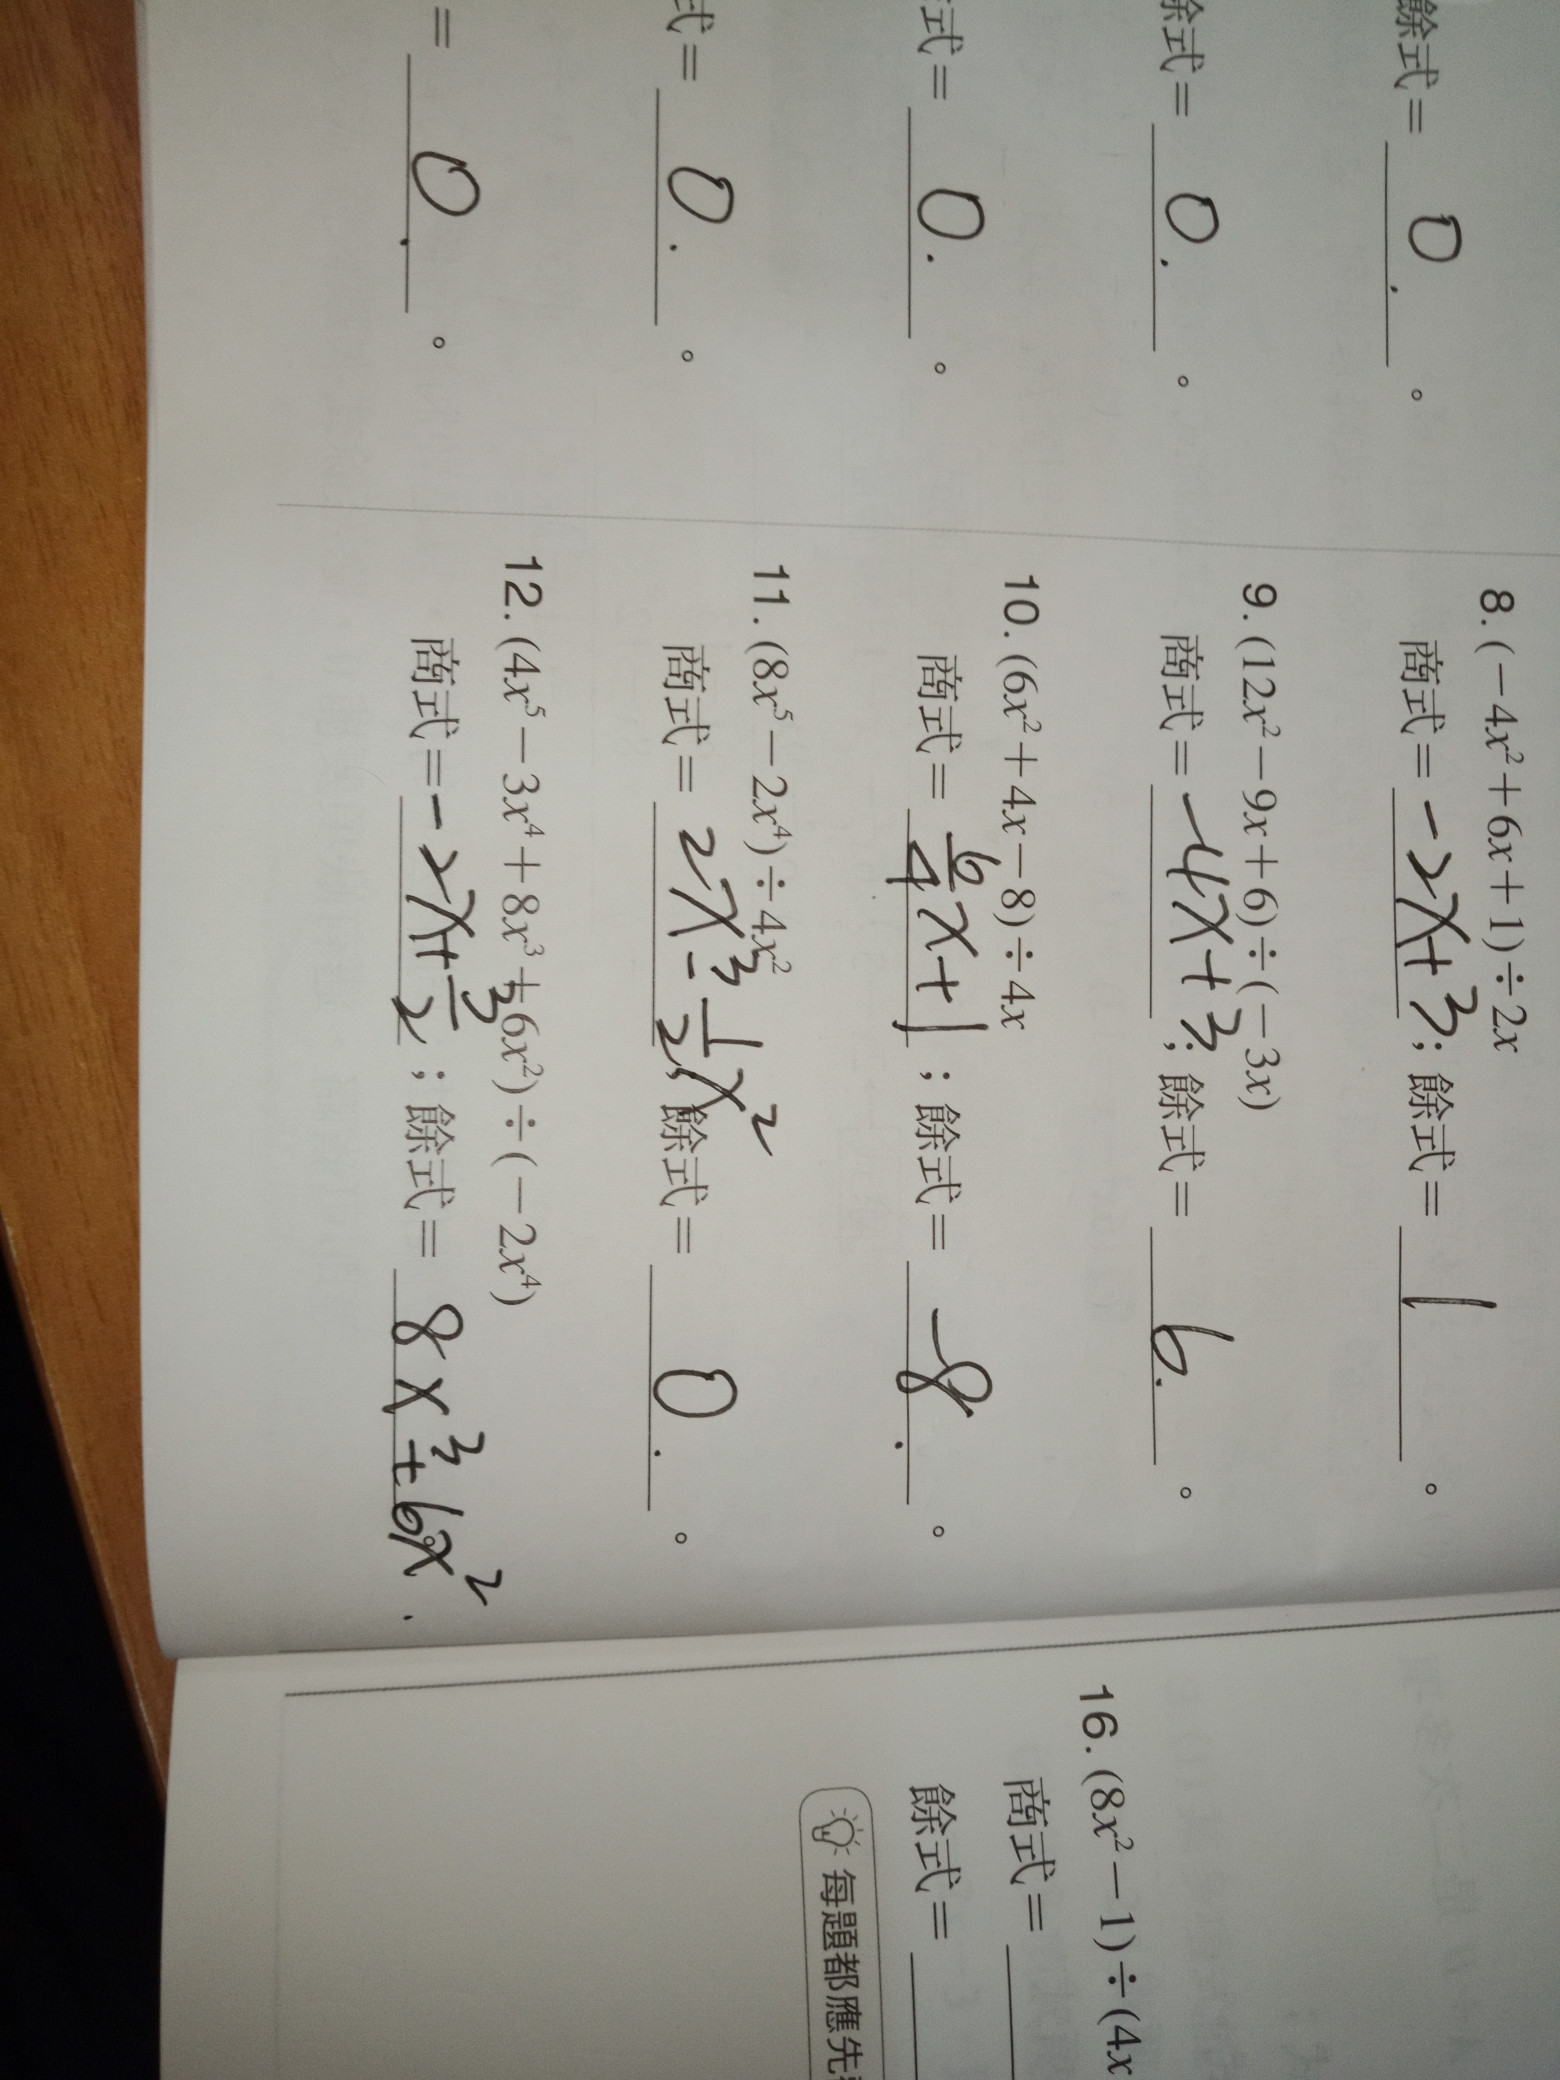 餘式= 0.。
餘式= 0.。
式= 0.。
式= 0.。
= 0.。
8.(-4x²+6x+1)÷2x
商式= -2x+3;餘式= 1。
9.(12x²-9x+6)÷(-3x)
商式= -4x+3;餘式= 6.。
10.(6x²+4x-8)÷4x
商式= 6/4x+1;餘式= -8.。
11.(8x⁵-2x⁴)÷4x²
商式= 2x³-1/2x²;餘式= 0.。
12.(4x⁵-3x⁴+8x³+6x²)÷(-2x⁴)
商式= -2x+3/2;餘式= 8x³+6x².。
16.(8x²-1)÷(4x
商式=
餘式=
每題都應先